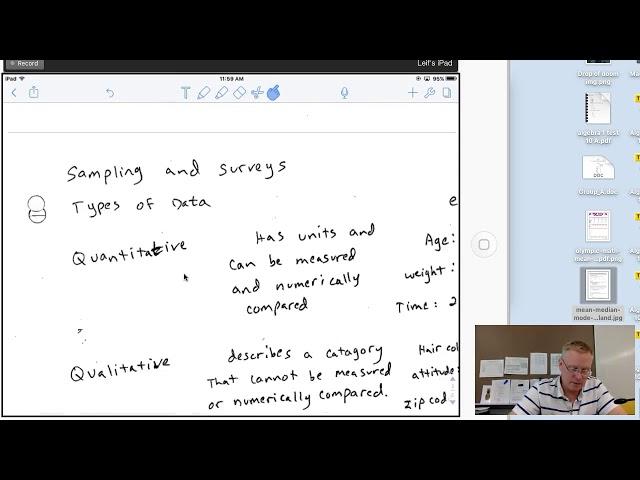 Record
Leif's iPad
iPad
11:59 AM
95%
T
Sampling and surveys
Types of Data
e
Quantitative
Has units and
can be measured
and numerically
compared
Age:
weight:
Time: 2
Qualitative
describes a catagory
That cannot be measured
or numerically compared.
Hair col
attitude:
zip cod
Drop of doom
img.png
Ma
algebra 1 test
10 A.pdf
Alg
DOC
Group_A.doc
Alg
olympic-math-
mean-...pdf.png
Alg
mean-median-
mode-...land.jpg
Alg